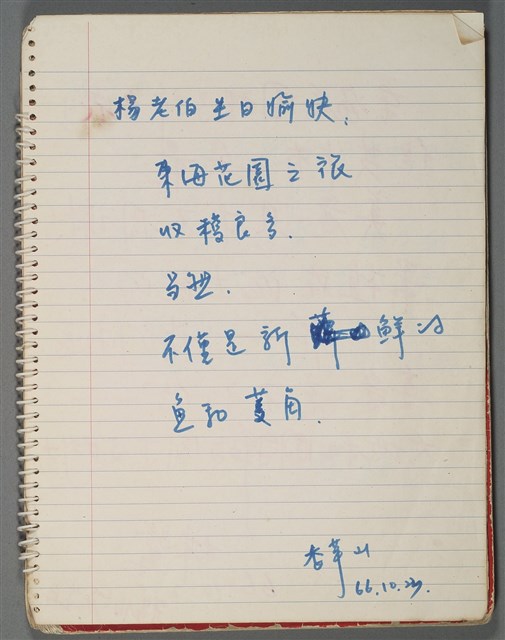 楊老伯生日愉快：
東海花園之旅
收穫良多．
當然．
不僅是新鮮的
魚和菱角．
李華山
66.10.23.